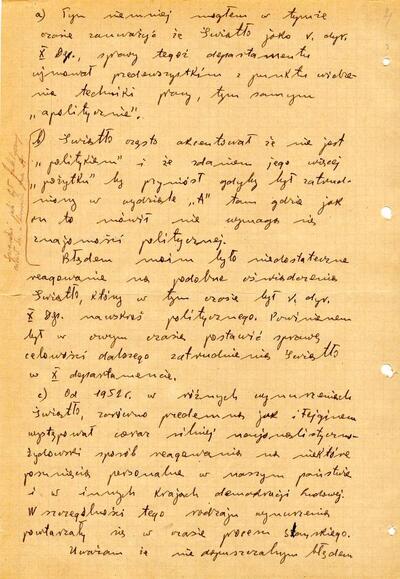 a) Tym niemniej mogłem w tymże
czasie zauważyć że Światło jako v. dyr.
X Dep., sprawy tegoż departamentu
ujmował przedewszystkim z punktu widze-
nia techniki pracy, tym samym
„apolitycznie".
b) Światło często akcentował że nie jest
„politykiem" i że zdaniem jego więcej
„pożytku" by przyniósł gdyby był zatrud-
niony w wydziale „A" tam gdzie jak
on to mówił nie wymaga się
znajomości politycznej.
Błędem moim było niedostateczne
reagowanie na podobne oświadczenia
Światło, który w tym czasie był v. dyr.
X Dep. nawskroś politycznego. Powinienem
był w owym czasie postawić sprawę
celowości dalszego zatrudnienia Światło
w X departamencie.
c) Od 1952 r. w różnych wynurzeniach
Światło, zarówno przedemną jak i Fejginem
występował coraz silniej nacjonalistyczno-
żydowski sposób reagowania na niektóre
posunięcia personalne w naszym państwie
i w innych krajach demokracji ludowej.
W szczególności tego rodzaju wynurzenia
powtarzały się w czasie procesu Slanskiego.
Uważam że niedopuszczalnym błędem